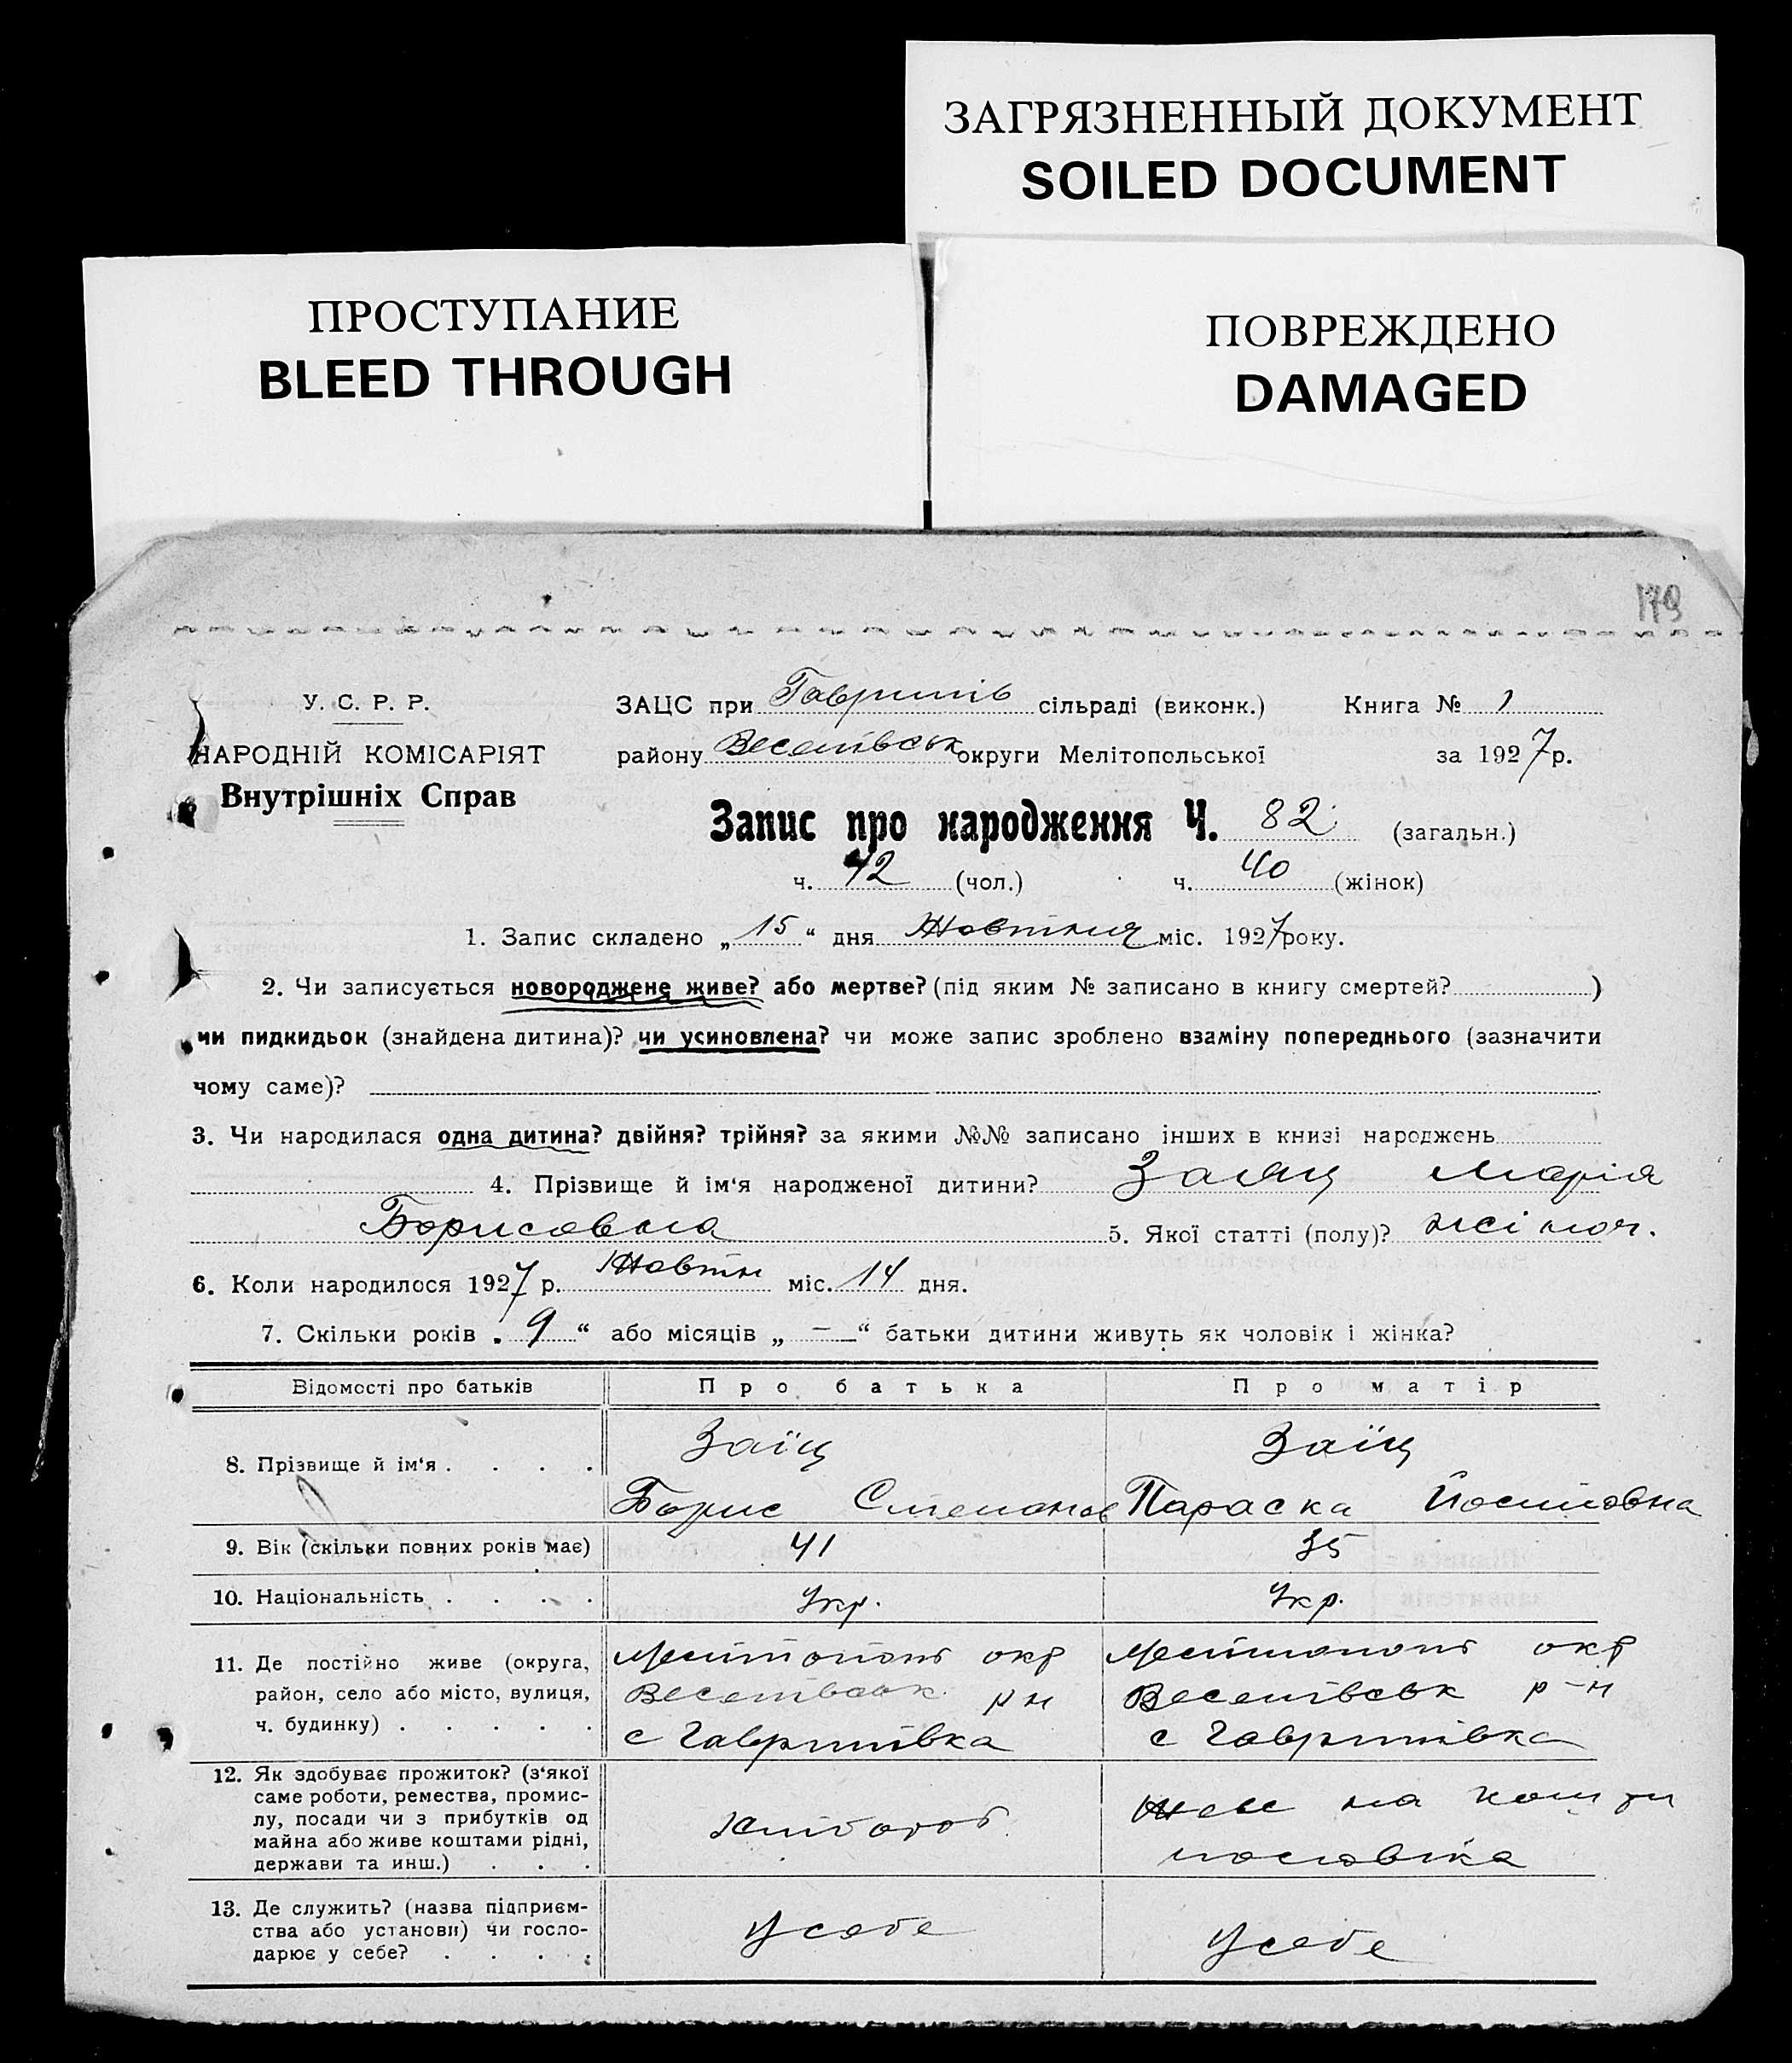 ЗАГРЯЗНЕННЫЙ ДОКУМЕНТ
SOILED DOCUMENT
ПРОСТУПАНИЕ
BLEED THROUGH
ПОВРЕЖДЕНО
DAMAGED
179
У. С. Р. Р.
НАРОДНІЙ КОМІСАРІЯТ
Внутрішніх Справ
ЗАЦС при Гаврилів сільраді (виконк.) Книга № 1
району Веселівськ округи Мелітопольської за 1927 р.
Запис про народження Ч. 82 (загальн.)
ч. 42 (чол.) ч. 40 (жінок)
1. Запис складено „ 15 “ дня Жовтня міс. 1927 року.
2. Чи записується новороджене живе? або мертве? (під яким № записано в книгу смертей? )
чи пидкидьок (знайдена дитина)? чи усиновлена? чи може запис зроблено взаміну попереднього (зазначити
чому саме)?
3. Чи народилася одна дитина? двійня? трійня? за якими №№ записано інших в книзі народжень
4. Прізвище й ім‘я народженої дитини? Заяц Марія
Борисовна 5. Якої статті (полу)? жіноч.
6. Коли народилося 1927 р. Жовтн міс. 14 дня.
7. Скільки років „ 9 “ або місяців „ — “ батьки дитини живуть як чоловік і жінка?
Відомості про батьків Про батька Про матір
8. Прізвище й ім‘я . . . . Заїц Заїц
Борис Степанов Параска Йосиповна
9. Вік (скільки повних років має) 41 35
10. Національність . . . . Укр. Укр.
11. Де постійно живе (округа, Мелітополь окр Мелітополь окр
район, село або місто, вулиця, Веселівськ рн Веселівськ р-н
ч. будинку) . . . . . с Гаврилівка с Гаврилівка
12. Як здобуває прожиток? (з‘якої
саме роботи, ремества, промис-
лу, посади чи з прибутків од
майна або живе коштами рідні,
держави та инш.) . . . хлібороб Жеве на кошти
чоловіка
13. Де служить? (назва підприєм-
ства або установи) чи госпо-
дарює у себе? . . . . У себе У себе